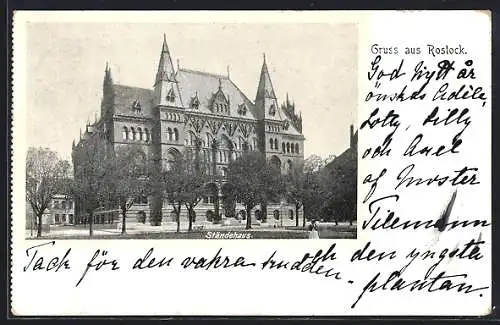 Gruss aus Rostock.
God Nytt år
önskas Adèle,
Lotty, Lilly
och Axel
af Moster
Tilemann
Ständehaus.
Tack för den vakra
och den yngsta
plantan.